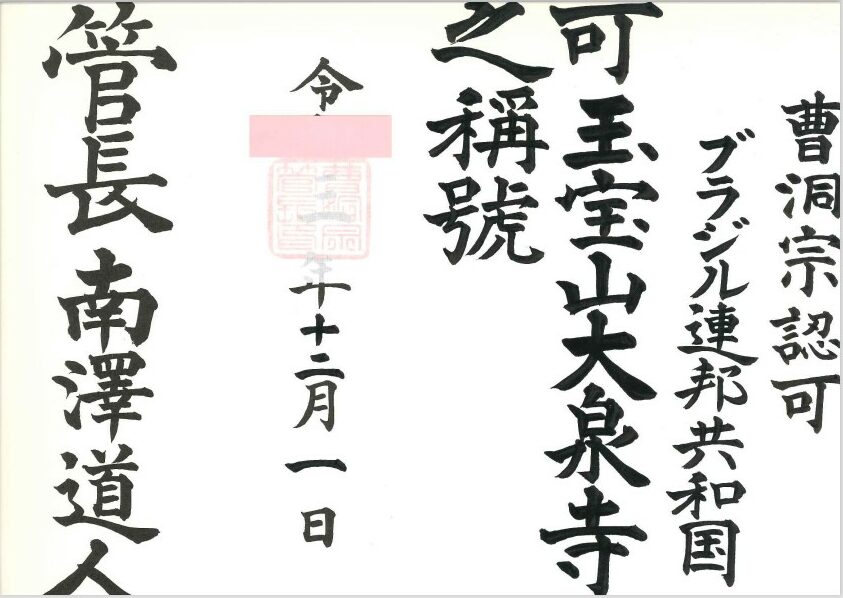 曹洞宗認可
ブラジル連邦共和国
可玉宝山大泉寺
之稱號
令 三年十二月一日
管長 南澤道人